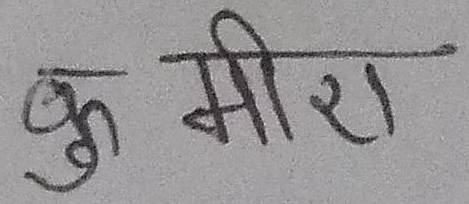 कु मीरा